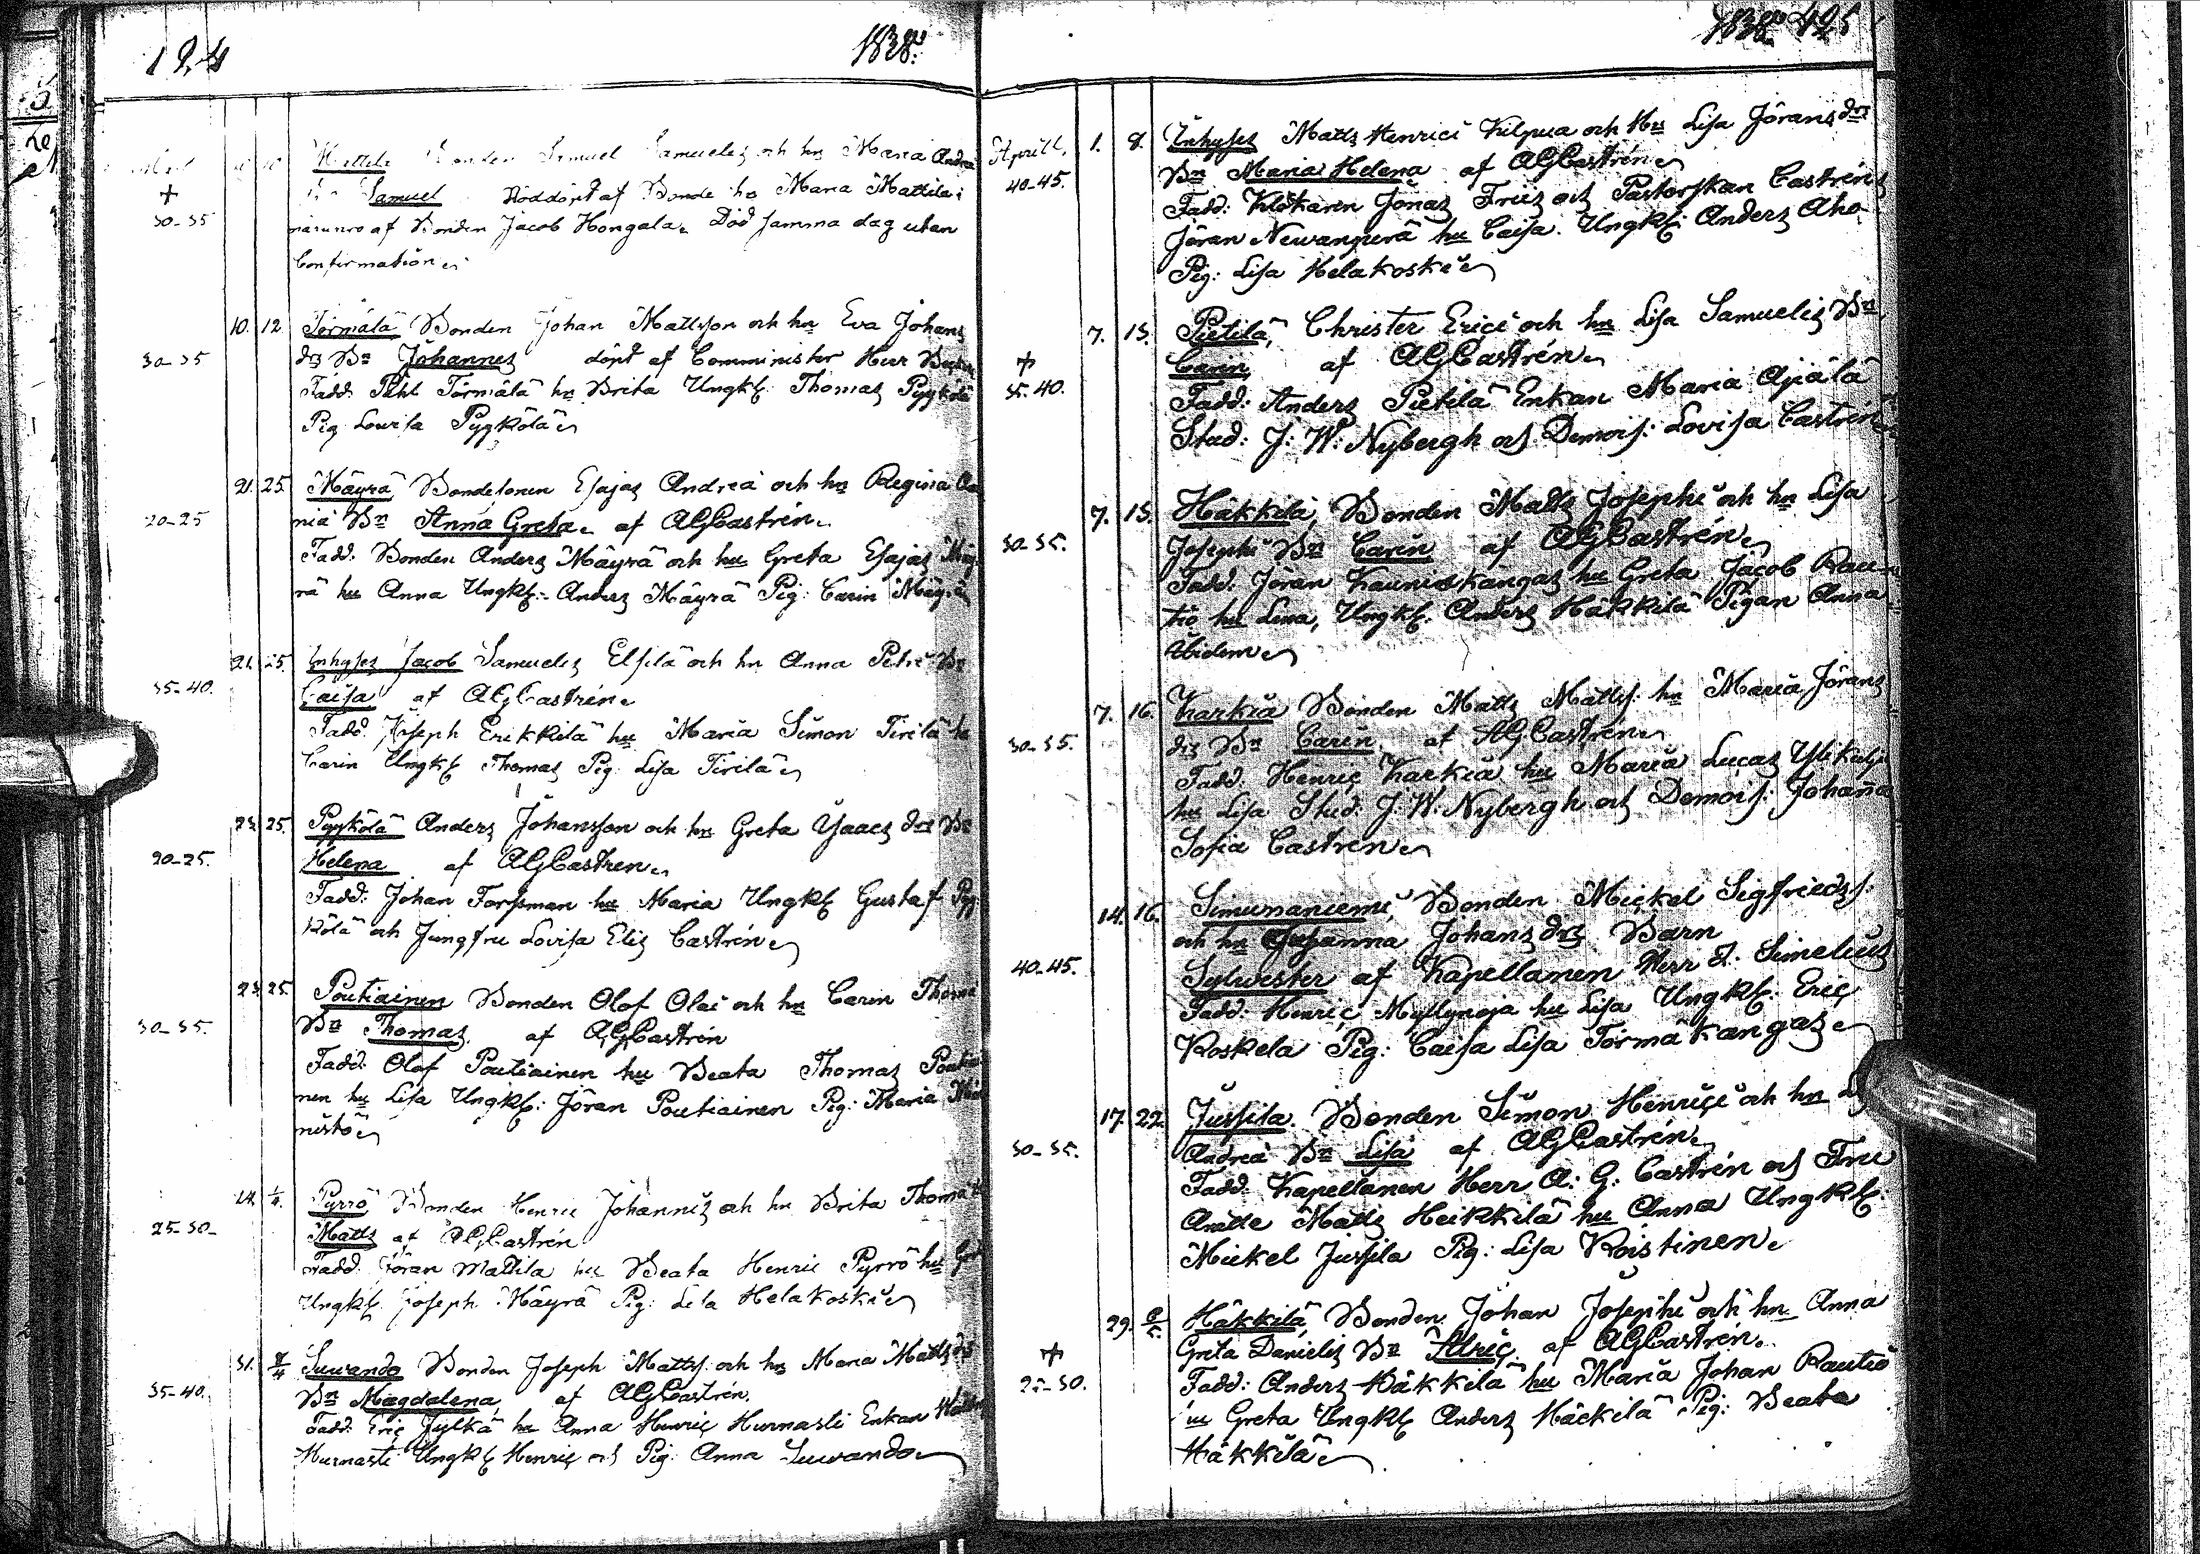 124
1838.
Mattila Bonden Samuel Samuelis och hn Maria Andreæ
Samuel Nöddöpt af Bonde hn Maria Mattila
af Bonden Jacob Hongala. Död samma dag utan
Confirmation.
+
30-35
10. 12. Törmälä Bonden Johan Mattsson och hn Eva Johans
drs Bn Johannes döpt af Comminister Herr
30-35
Fadd: Påhl Törmälä hu Brita Ungkl: Thomas Pyykölä
Pig Lovisa Pyykölä
21. 25. Mäyrä Bondesonen Esajas Andreæ och hn Regina
20-25
Bn Anna Greta. af AGCastrén.
Fadd. Bonden Anders Mäyrä och hu Greta Esajas Mäy-
rä hu Anna Ungkl: Anders Mäyrä Pig: Carin Mäyrä
21. 25. Inhyses Jacob Samuelis Elsilä och hn Anna Petri Bn
35-40.
Caisa af AGCastrén.
Fadd. Joseph Erikkilä hu Maria Simon Tirilä hu
Carin Ungkl Thomas Pig: Lisa Tirilä
23. 25. Pyykölä Anders Johansson och hn Greta Isaacs drs Bn
20-25.
Helena af AGCastrén.
Fadd: Johan Forssman hu Maria Ungkl Gustaf Pyy-
kölä och Jungfru Lovisa Elis Castrén
23. 25. Poutiainen Bonden Olof Olai och hn Carin Thomæ
30-35.
Bn Thomas. af AGCastrén
Fadd: Olof Poutiainen hu Beata Thomas Poutiai-
nen hu Lisa Ungkl: Jöran Poutiainen Pig: Maria
nistö
24. 1/4. Pyrrö Bonden Henric Johannis och hn Brita Thomæ
25-30-
Matts af AGCastrén
Fadd. Jöran Mattila hu Beata Henric Pyrrö hu
Ungkl. Joseph Mäyrä Pig: Lisa Helakoski
31. 8/4 Suvando Bonden Joseph Mattss. och hn Maria Matts drs
35-40.
Bn Magdalena, af AGCastrén.
Fadd: Eric Jylkä hu Anna Henric Hurnasti Enkan
Hurnasti Ungkl Henric och Pig: Anna Suvando
1838. 125
Aprill. 1. 8. Inhyses Matts Henrici Kilpua och Hu Lisa Jörans drs
40-45.
Bn Maria Helena af AGCastrén
Fadd: Klåkaren Jonas Friis och Pastorskan Castrén
Jöran Newanperä hu Caisa. Ungkl: Anders Aho
Pig: Lisa Helakoski
7. 15. Pietilä, Christer Erici och hn Lisa Samuelis Bn
+
35-40.
Carin af AGCastrén.
Fadd: Anders Pietilä Enkan Maria Ajälä
Stud: J: W: Nybergh och Demois: Lovisa Castrén
7. 15. Häkkilä, Bonden Matts Josephi och hn Lisa
30-35.
Josephi Bn Carin af AGCastrén
Fadd: Jöran Kauniskangas hu Greta Jacob Rau-
tio hu Lena, Ungkl: Anders Häkkilä Pigan Anna
ibidem
7. 16. Karkia Bonden Matts Mattss: hn Maria Jörans
30-35.
drs Bn Carin. af AGCastrén
Fadd: Henric Karkia hu Maria Lucas
hu Lisa Stud: J: W: Nybergh och Demois: Johanna
Sofia Castrén
14. 16. Simunaniemi, Bonden Mickel Sigfrieds.
och hn Susanna Johans drs Barn
40-45.
Sylvester af Kapellanen Herr Simelius
Fadd: Henric Myllynoja hu Lisa Ungkl: Eric
Koskela Pig: Caisa Lisa Törmäkangas
17. 22. Jussila. Bonden Simon Henrici och hn
30-35.
Andreæ Bn Lisa af AGCastrén.
Fadd: Kapellanen Herr A: G: Castrén och Fru
Matts Heikkilä hu Anna Ungkl:
Mickel Jussila Pig: Lisa Koistinen.
29. 6/5. Häkkilä, Bonden Johan Josephi och hn Anna
+
25-30.
Greta Danielis Bn Ulric. af AGCastrén.
Fadd: Anders Häkkilä hu Maria Johan Rautio
hu Greta Ungkl Anders Häckilä Pig: Beata
Häkkilä